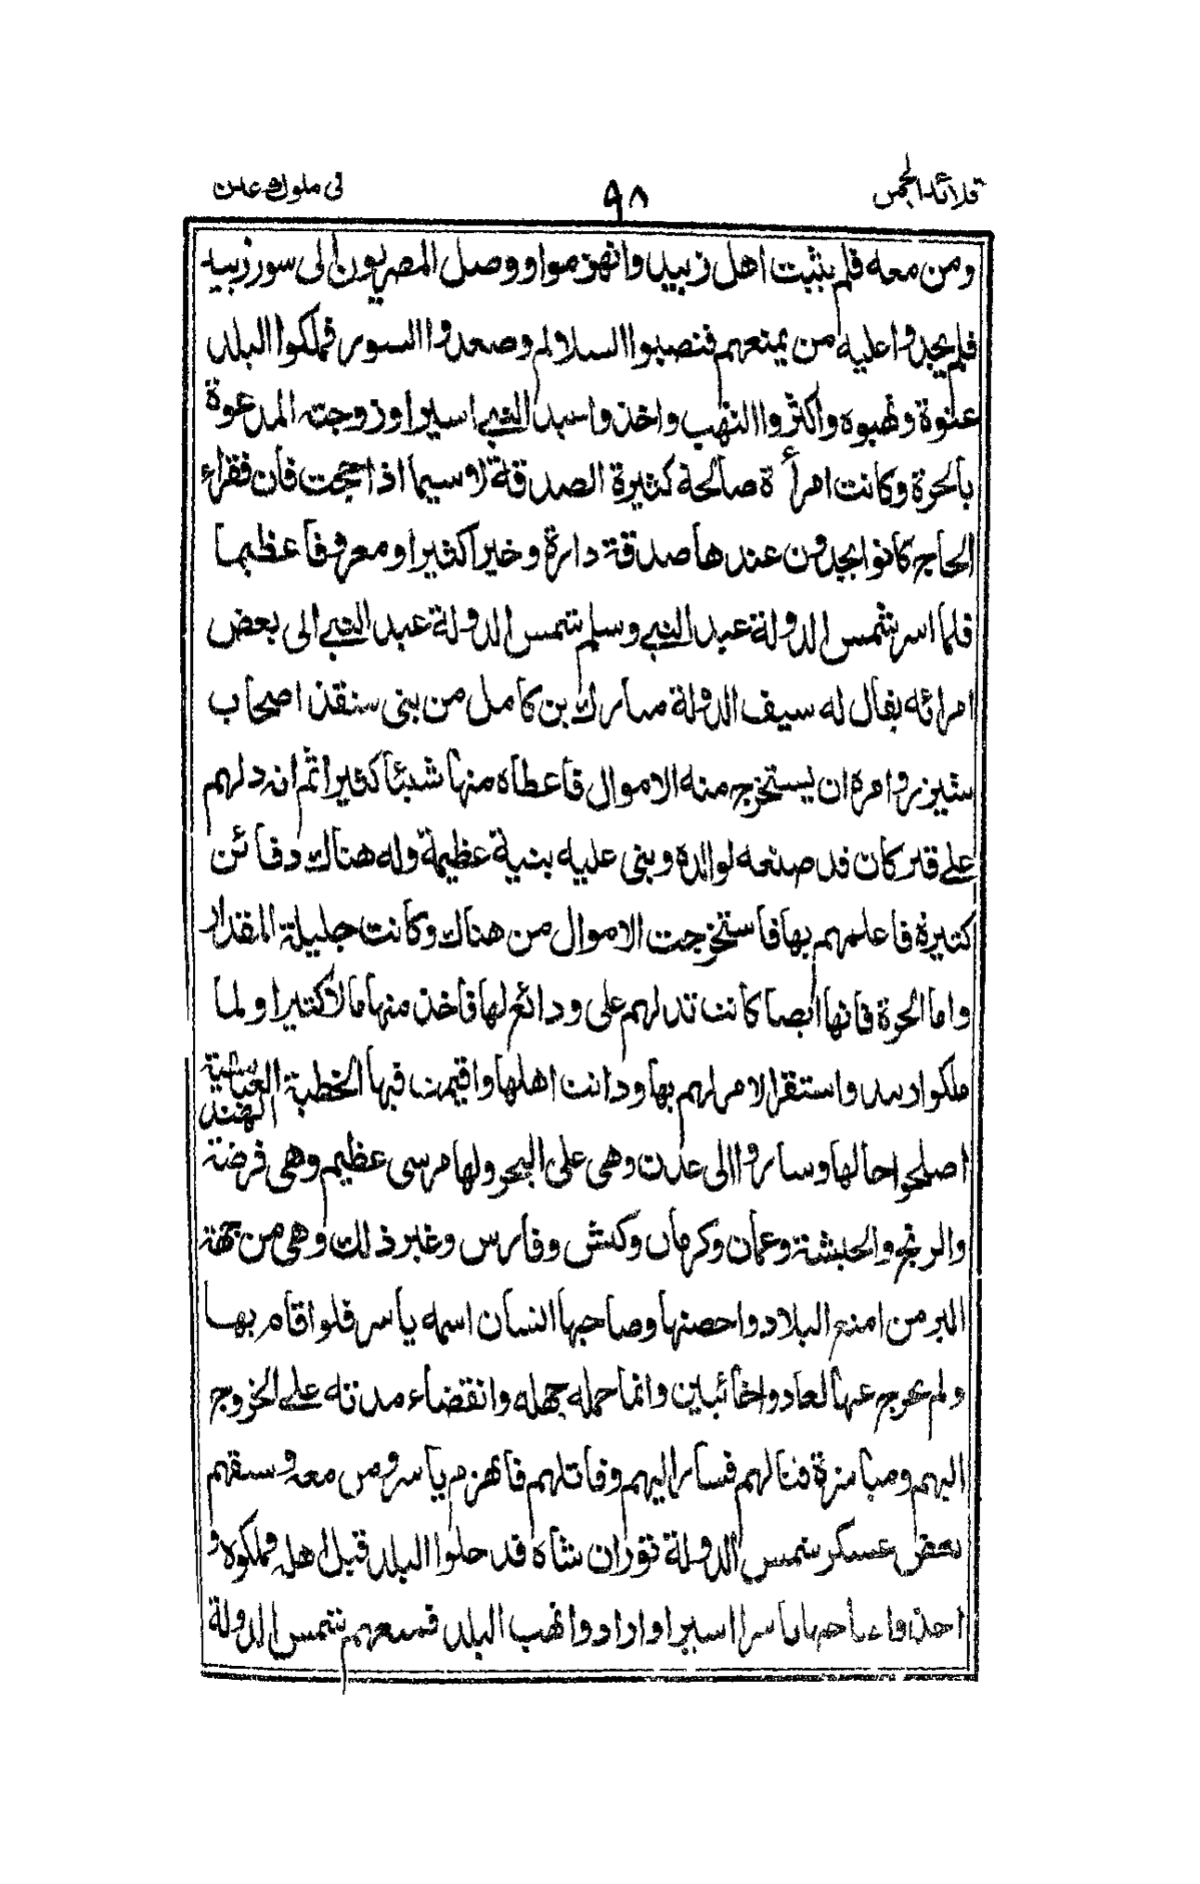 قلائد الجمن
٩٨
في ملوك عدن
ومن معه فلم يثبت اهل زبيد وانهزموا ووصل المصريون الى سور زبيد
فلم يجدوا عليه من يمنعهم فنصبوا السلالم وصعدوا السور فملكوا البلد
عنوة ونهبوه واكثروا النهب واخذوا عبد النبي اسيرا وزوجته المدعوة
بالحرة وكانت امرأة صالحة كثيرة الصدقة لاسيما اذا حجت فان فقراء
الحاج كانوا يجدون عندها صدقة دارة وخيرا كثيرا ومعروفا عظيما
فلما اسر شمس الدولة عبد النبي وسلم شمس الدولة عبد النبي الى بعض
امرائه يقال له سيف الدولة مبارك بن كامل من بني سنقذ اصحاب
شيزر وامره ان يستخرج منه الاموال فاعطاه منها شيئا كثيرا ثم انه دلهم
على قبر كان قد صنعه لوالده وبنى عليه بنية عظيمة وله هناك دفائن
كثيرة فاعلمهم بها فاستخرجت الاموال من هناك وكانت جليلة المقدار
واما الحرة فانها ايضا كانت تدلهم على ودائع لها فاخذ منها مالا كثيرا ولما
ملكوا زبيد واستقر الامر لهم بها ودانت اهلها واقيمت فيها الخطبة العباسية
اصلحوا حالها وساروا الى عدن وهي على البحر ولها مرسى عظيم وهي فرضة الهند
والزنج والحبشة وعمان وكرمان وكيش وفارس وغير ذلك وهي من جهة
البر من امنع البلاد واحصنها وصاحبها انسان اسمه ياسر فلو اقام بها
ولم يخرج عنها لعادوا خائبين وانما حمله جهله وانقضاء مدته على الخروج
اليهم ومباشرة قتالهم فسار اليهم وقاتلهم فانهزم ياسر ومن معه وسبقهم
بعض عسكر شمس الدولة توران شاه قد دخلوا البلد قبل اهله فملكوه و
اخذوا صاحبها ياسرا اسيرا وارادوا نهب البلد فمنعهم شمس الدولة